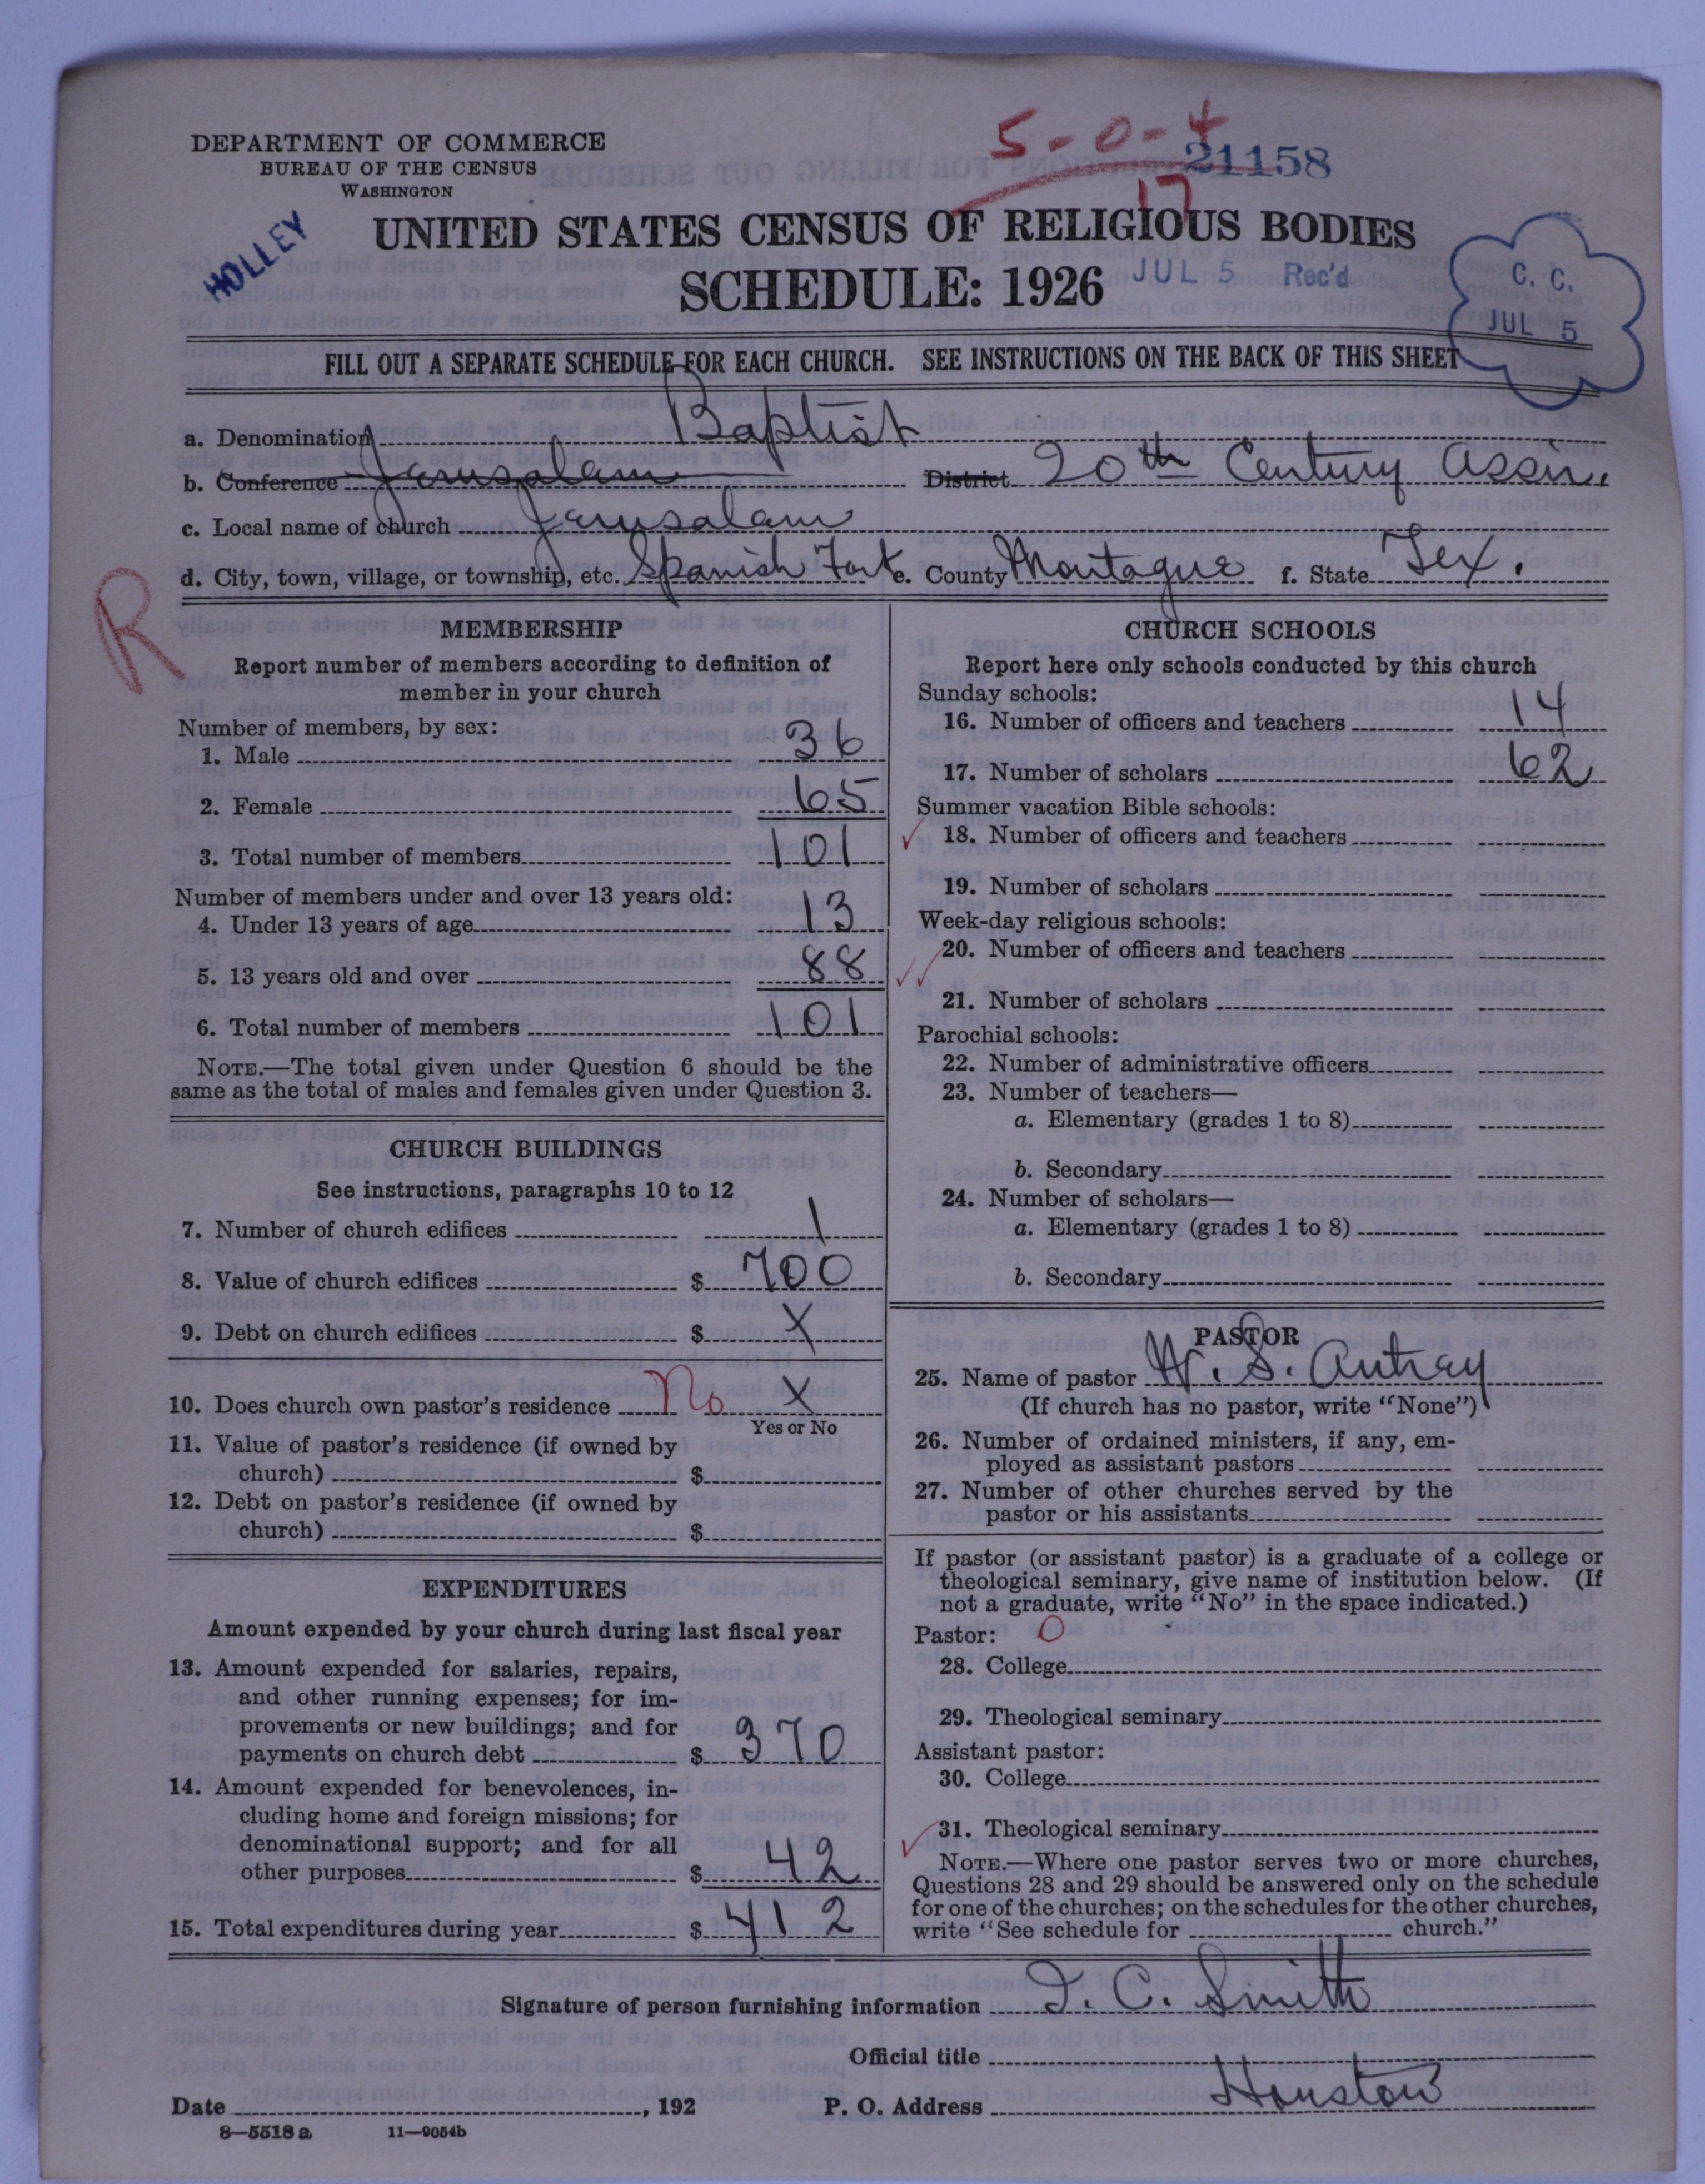 DEPARTMENT OF COMMERCE
BUREAU OF THE CENSUS
WASHINGTON
5-0-4
21158
17
HOLLEY
UNITED STATES CENSUS OF RELIGIOUS BODIES
SCHEDULE: 1926
JUL 5 Rec'd
C. C.
JUL 5
FILL OUT A SEPARATE SCHEDULE FOR EACH CHURCH. SEE INSTRUCTIONS ON THE BACK OF THIS SHEET
a. Denomination Baptist
b. Conference Jerusalam District 20th Century Assn.
c. Local name of church Jerusalam
d. City, town, village, or township, etc. Spanish Fort e. County Montague f. State Tex.
R
MEMBERSHIP
Report number of members according to definition of
member in your church
Number of members, by sex:
1. Male 36
2. Female 65
3. Total number of members 101
Number of members under and over 13 years old:
4. Under 13 years of age 13
5. 13 years old and over 88
6. Total number of members 101
NOTE.—The total given under Question 6 should be the
same as the total of males and females given under Question 3.
CHURCH BUILDINGS
See instructions, paragraphs 10 to 12
7. Number of church edifices 1
8. Value of church edifices $ 700
9. Debt on church edifices $ X
10. Does church own pastor's residence No X
Yes or No
11. Value of pastor's residence (if owned by
church) $
12. Debt on pastor's residence (if owned by
church) $
EXPENDITURES
Amount expended by your church during last fiscal year
13. Amount expended for salaries, repairs,
and other running expenses; for im-
provements or new buildings; and for
payments on church debt $ 370
14. Amount expended for benevolences, in-
cluding home and foreign missions; for
denominational support; and for all
other purposes $ 42
15. Total expenditures during year $ 412
CHURCH SCHOOLS
Report here only schools conducted by this church
Sunday schools:
16. Number of officers and teachers 14
17. Number of scholars 62
Summer vacation Bible schools:
18. Number of officers and teachers
19. Number of scholars
Week-day religious schools:
20. Number of officers and teachers
21. Number of scholars
Parochial schools:
22. Number of administrative officers
23. Number of teachers—
a. Elementary (grades 1 to 8)
b. Secondary
24. Number of scholars—
a. Elementary (grades 1 to 8)
b. Secondary
PASTOR
25. Name of pastor W. S. Autrey
(If church has no pastor, write "None")
26. Number of ordained ministers, if any, em-
ployed as assistant pastors
27. Number of other churches served by the
pastor or his assistants
If pastor (or assistant pastor) is a graduate of a college or
theological seminary, give name of institution below. (If
not a graduate, write "No" in the space indicated.)
Pastor: 0
28. College
29. Theological seminary
Assistant pastor:
30. College
31. Theological seminary
NOTE.—Where one pastor serves two or more churches,
Questions 28 and 29 should be answered only on the schedule
for one of the churches; on the schedules for the other churches,
write "See schedule for church."
Signature of person furnishing information J. C. Smith
Official title
Date , 192 P. O. Address Houston
8—5518 a 11—9054b